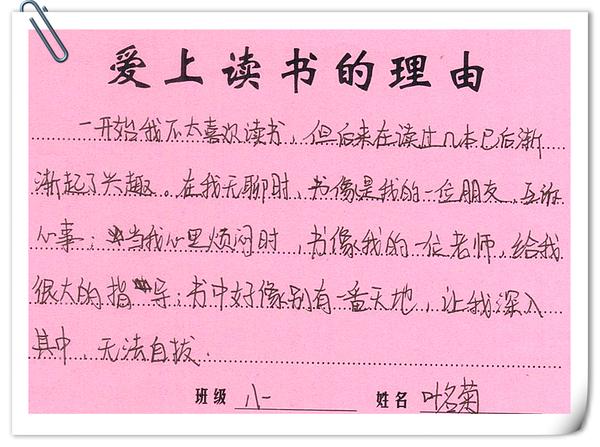 爱上读书的理由
一开始我不太喜欢读书，但后来在读过几本已后渐
渐起了兴趣。在我无聊时，书像是我的一位朋友，互诉
心事；当我心里烦闷时，书像我的一位老师，给我
很大的指导；书中好像别有一番天地，让我深入
其中 无法自拔.
班级 八一 姓名 叶名菊